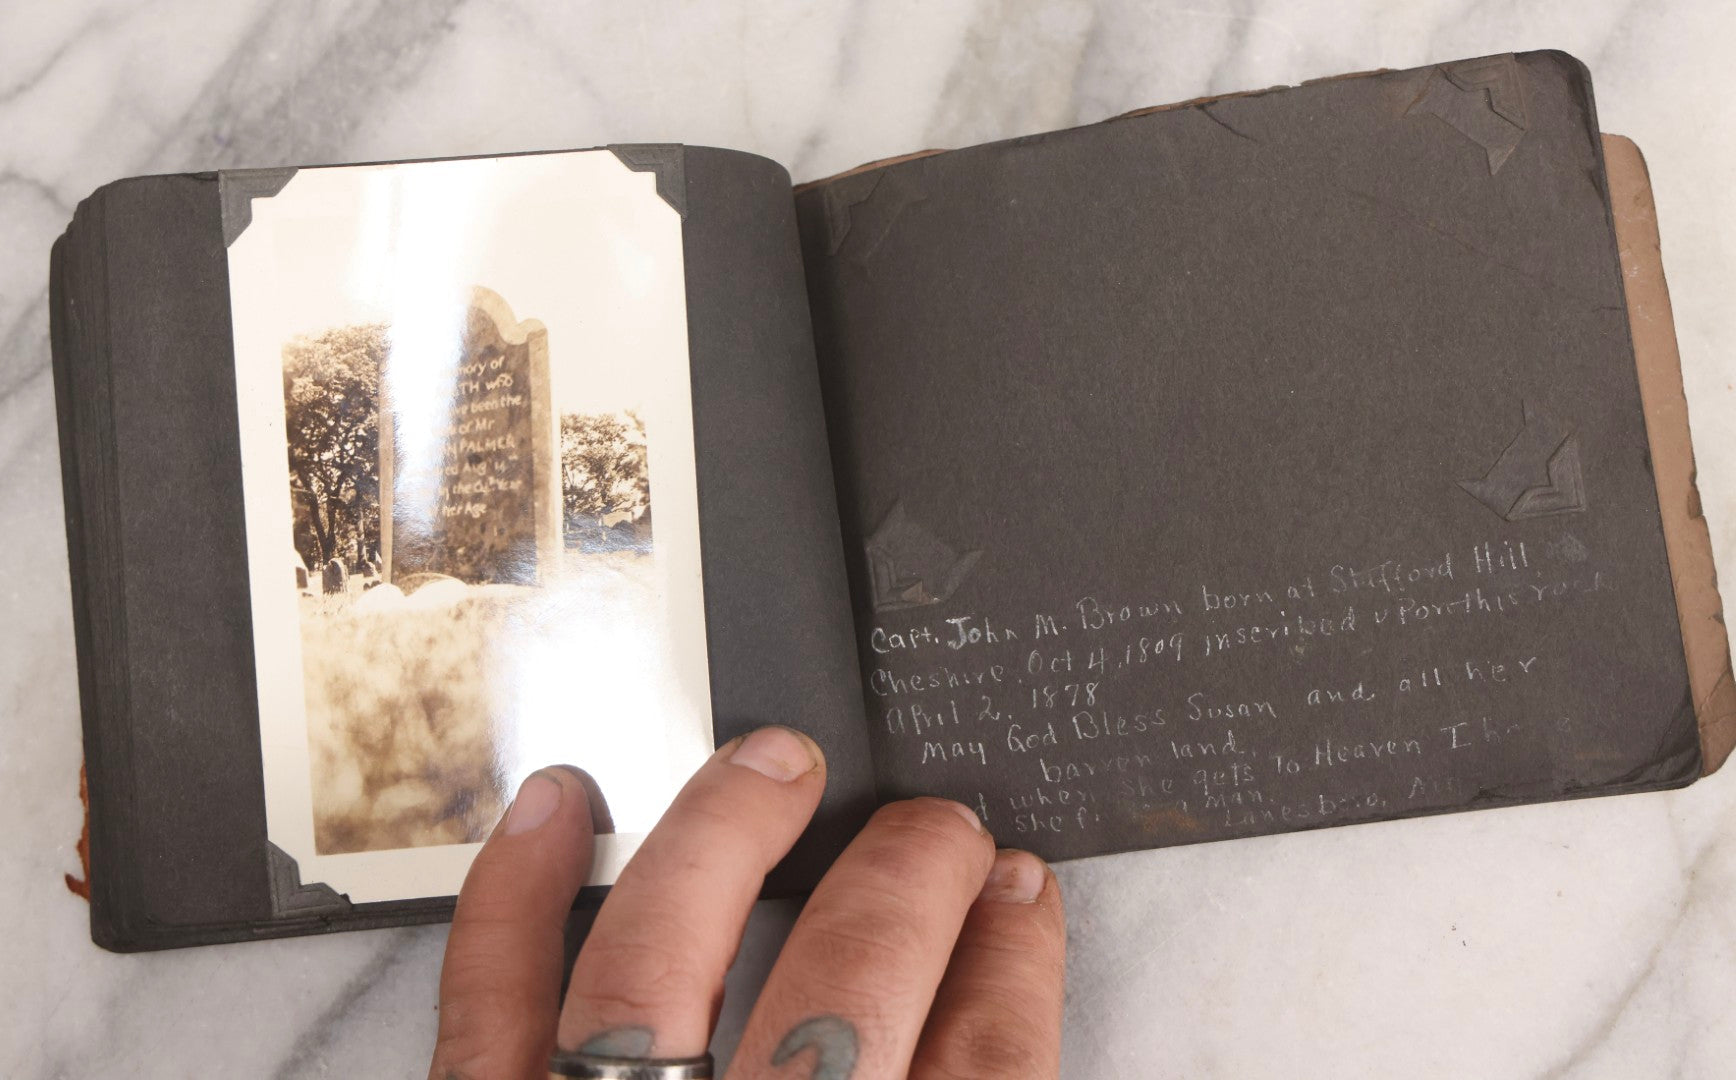 mory of
TH who
ve been the
of Mr
N PALMER
Aug
the
her Age
Capt. John M. Brown born at Stafford Hill
Cheshire. Oct 4, 1809 inscribed upon this rock
April 2, 1878
May God Bless Susan and all her
barren land.
when she gets To Heaven I
she a man.
Lanesboro,